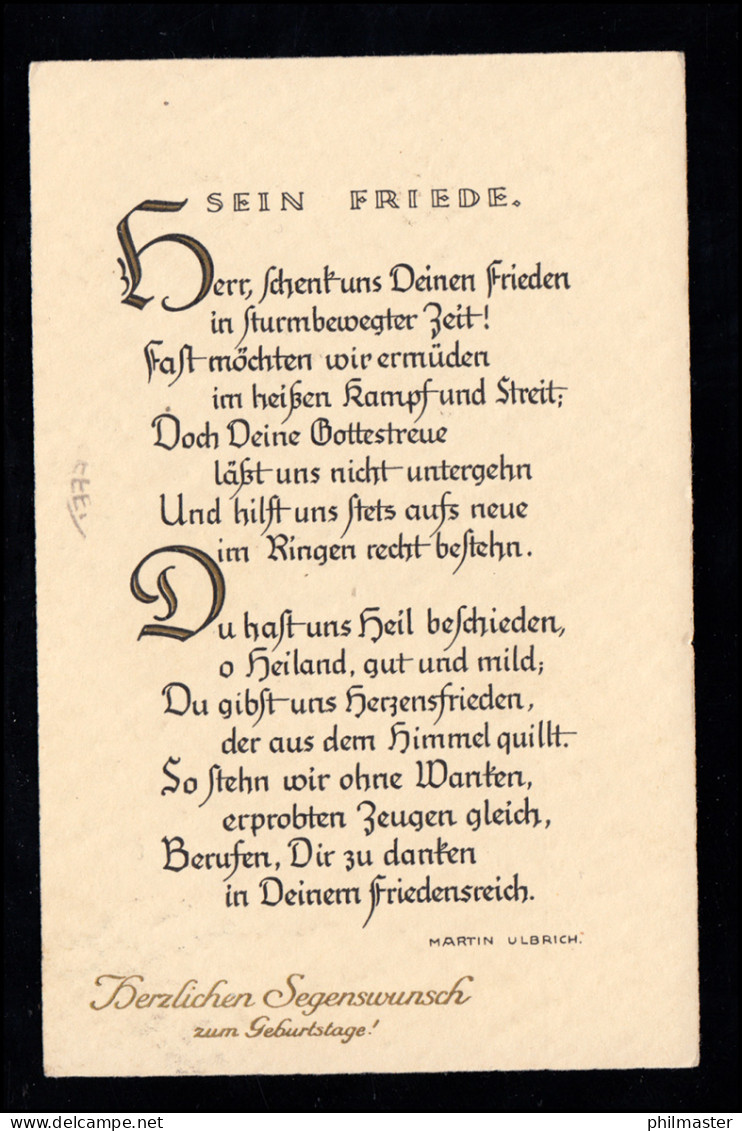 SEIN FRIEDE.
Herr, schenk uns Deinen Frieden
in sturmbewegter Zeit!
Fast möchten wir ermüden
im heißen Kampf und Streit;
Doch Deine Gottestreue
läßt uns nicht untergehn
Und hilft uns stets aufs neue
im Ringen recht bestehn.
Du hast uns Heil beschieden,
o Heiland, gut und mild;
Du gibst uns Herzensfrieden,
der aus dem Himmel quillt.
So stehn wir ohne Wanken,
erprobten Zeugen gleich,
Berufen, Dir zu danken
in Deinem Friedensreich.
MARTIN ULBRICH.
Herzlichen Segenswunsch
zum Geburtstage!
delcampe.net
philmaster